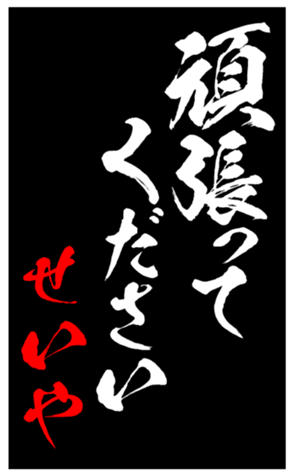 頑張って
ください
せいや